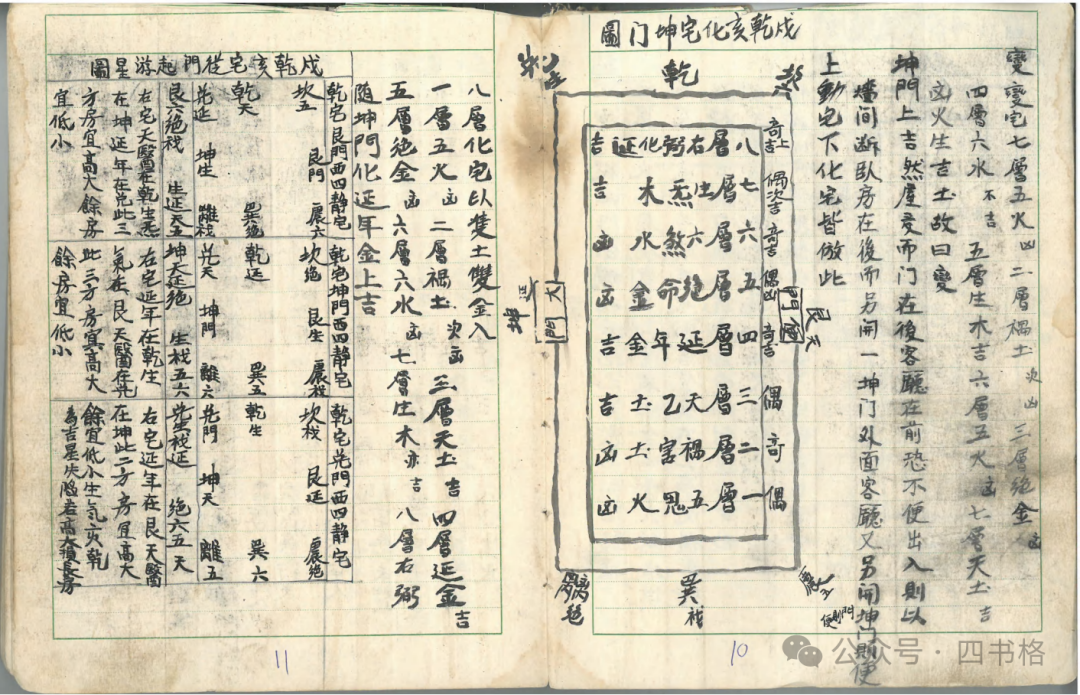 變變宅七層五火凶二層禍土次凶三層绝金凶
四層六水不吉五層生木吉六層五火凶七層天土吉
文火生吉土故曰變
坤門上吉然屋変而门在後客廳在前恐不便出入則以
墻间断臥房在後而另開一坤门外面客廳又另開坤门則便
上動宅下化宅皆倣此
戍乾亥化宅坤门圖
乾
艮天
巽栈
坤
大門
便門
八層右弼化延吉
七層生炁木吉
六層六煞水凶
五層绝命金凶
四層延年金吉
三層天乙土吉
二層禍害土凶
一層五鬼火凶
奇上吉
偶次吉
奇吉
偶凶
奇吉
偶
奇
偶
八層化宅以雙土雙金入
一層五火凶二層禍土次凶三層天土吉四層延金吉
五層绝金凶六層六水凶七層生木亦吉八層右弼
随坤門化延年金上吉
戍乾亥宅從門起游星圖
乾宅艮門西四静宅
坎五 艮門 震六
乾天 巽绝
兑延 坤生 離栈
艮六绝栈 生延天五
右宅天醫在乾生炁
在坤延年在兑此三
方房宜高大餘房
宜低小
乾宅坤門西四静宅
坎绝 艮生 震栈
乾延 巽五
兑天 坤門 離六
坤天延绝 生栈五六
右宅延年在乾生
氣在艮天醫在兑
此三方房宜高大
餘房宜低小
乾宅兑門西四静宅
坎栈 艮延 震绝
乾生 巽六
兑門 坤天 離五
兑生栈延 绝六五天
右宅延年在艮天醫
在坤此二方房宜高大
餘宜低小生气㐲乾
為吉星失陷若高大損長房
11
10
公众号·四书格